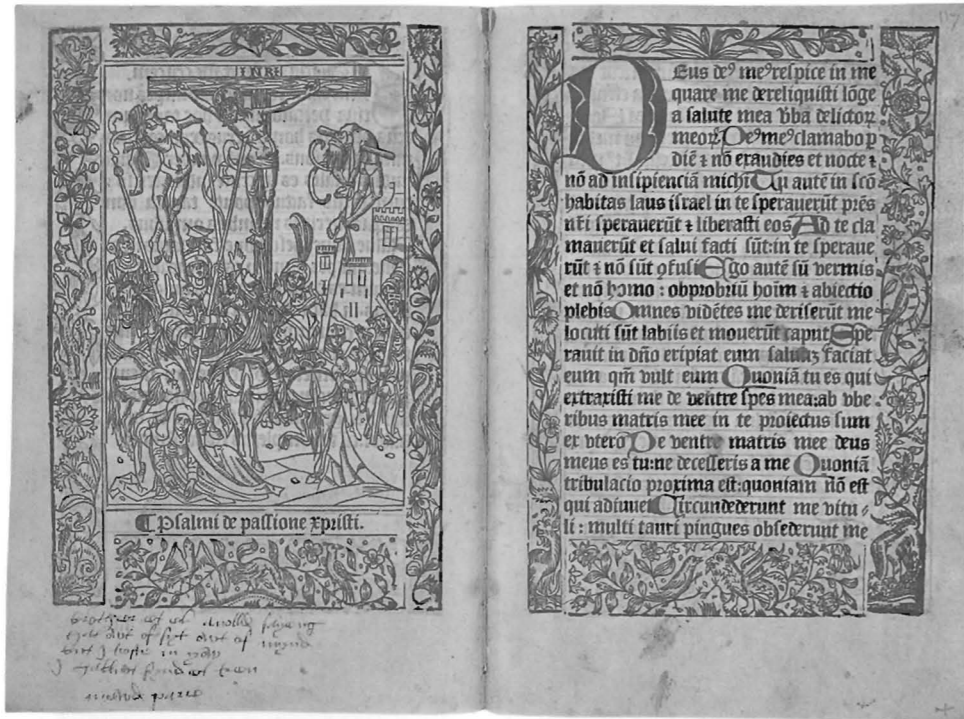 INRI
Psalmi de passione xpristi.
out of syt out of mynd
DEus deꝰ meꝰ respice in me
quare me dereliquisti lōge
a salute mea v̄ba delictoꝝ
meoꝝ Deꝰ meꝰ clamabo ꝑ
diē ⁊ nō exaudies et nocte ⁊
nō ad insipienciā michi Tu autē in scō
habitas laus israel in te sperauerūt p̄r̄es
nr̄i sperauerūt ⁊ liberasti eos Ad te cla
mauerūt et salui facti sūt: in te speraue
rūt ⁊ nō sūt ꝯfusi Ego autē sū vermis
et nō homo : obprobriū hoīm ⁊ abiectio
plebis Omnes vidētes me deriserūt me
locuti sūt labiis et mouerūt caput Spe
rauit in dn̄o eripiat eum saluū faciat
eum qm̄ vult eum Quoniā tu es qui
extraxisti me de ventre spes mea: ab vbe
ribus matris mee in te proiectus sum
ex vtero De ventre matris mee deus
meus es tu: ne decesseris a me Quoniā
tribulacio proxima est: quoniam nō est
qui adiuuet Circundederunt me vitu⸗
li : multi tauri pingues obsederunt me